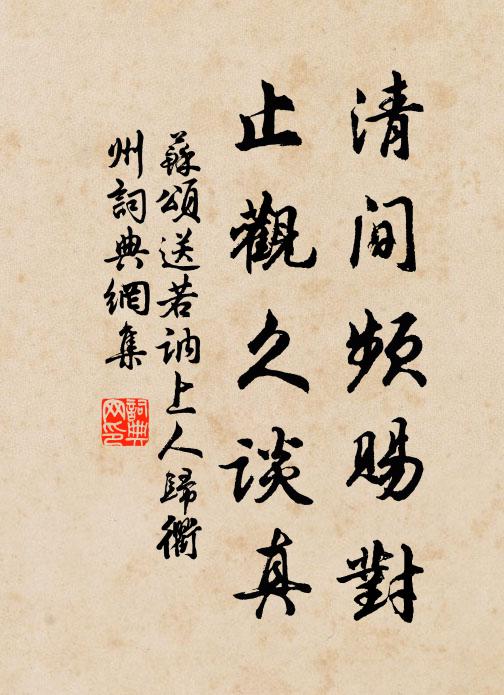 清間頻賜對
止觀久談真
蘇頌送若訥上人歸衢
州詞典網集
詞典
网印